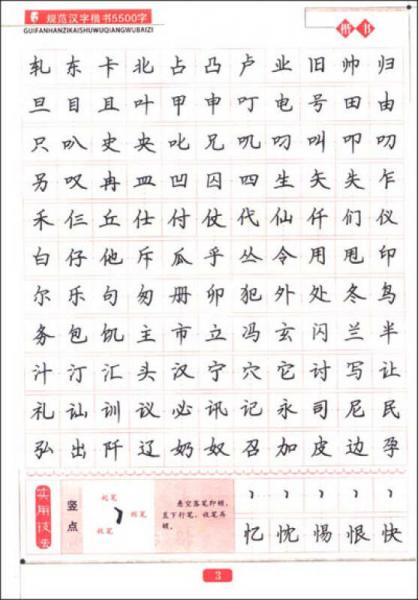 规范汉字楷书5500字
GUIFANHANZIKAISHUWUQIANGWUBAIZI
楷书
轧东卡北占凸卢业旧帅归
旦目且叶甲申叮电号田由
只叭史央叱兄叽叼叫叩叨
另叹冉皿凹囚四生矢失乍
禾仨丘仕付仗代仙仟们仪
白仔他斥瓜乎丛令用甩印
尔乐句匆册卯犯外处冬鸟
务包饥主市立冯玄闪兰半
汁汀汇头汉宁穴它讨写让
礼讪训议必讯记永司尼民
弘出阡辽奶奴召加皮边孕
实用技法
竖点
起笔
行笔
收笔
悬空落笔即顿，
直下行笔，收笔再
顿。
忆忱惕恨快
3